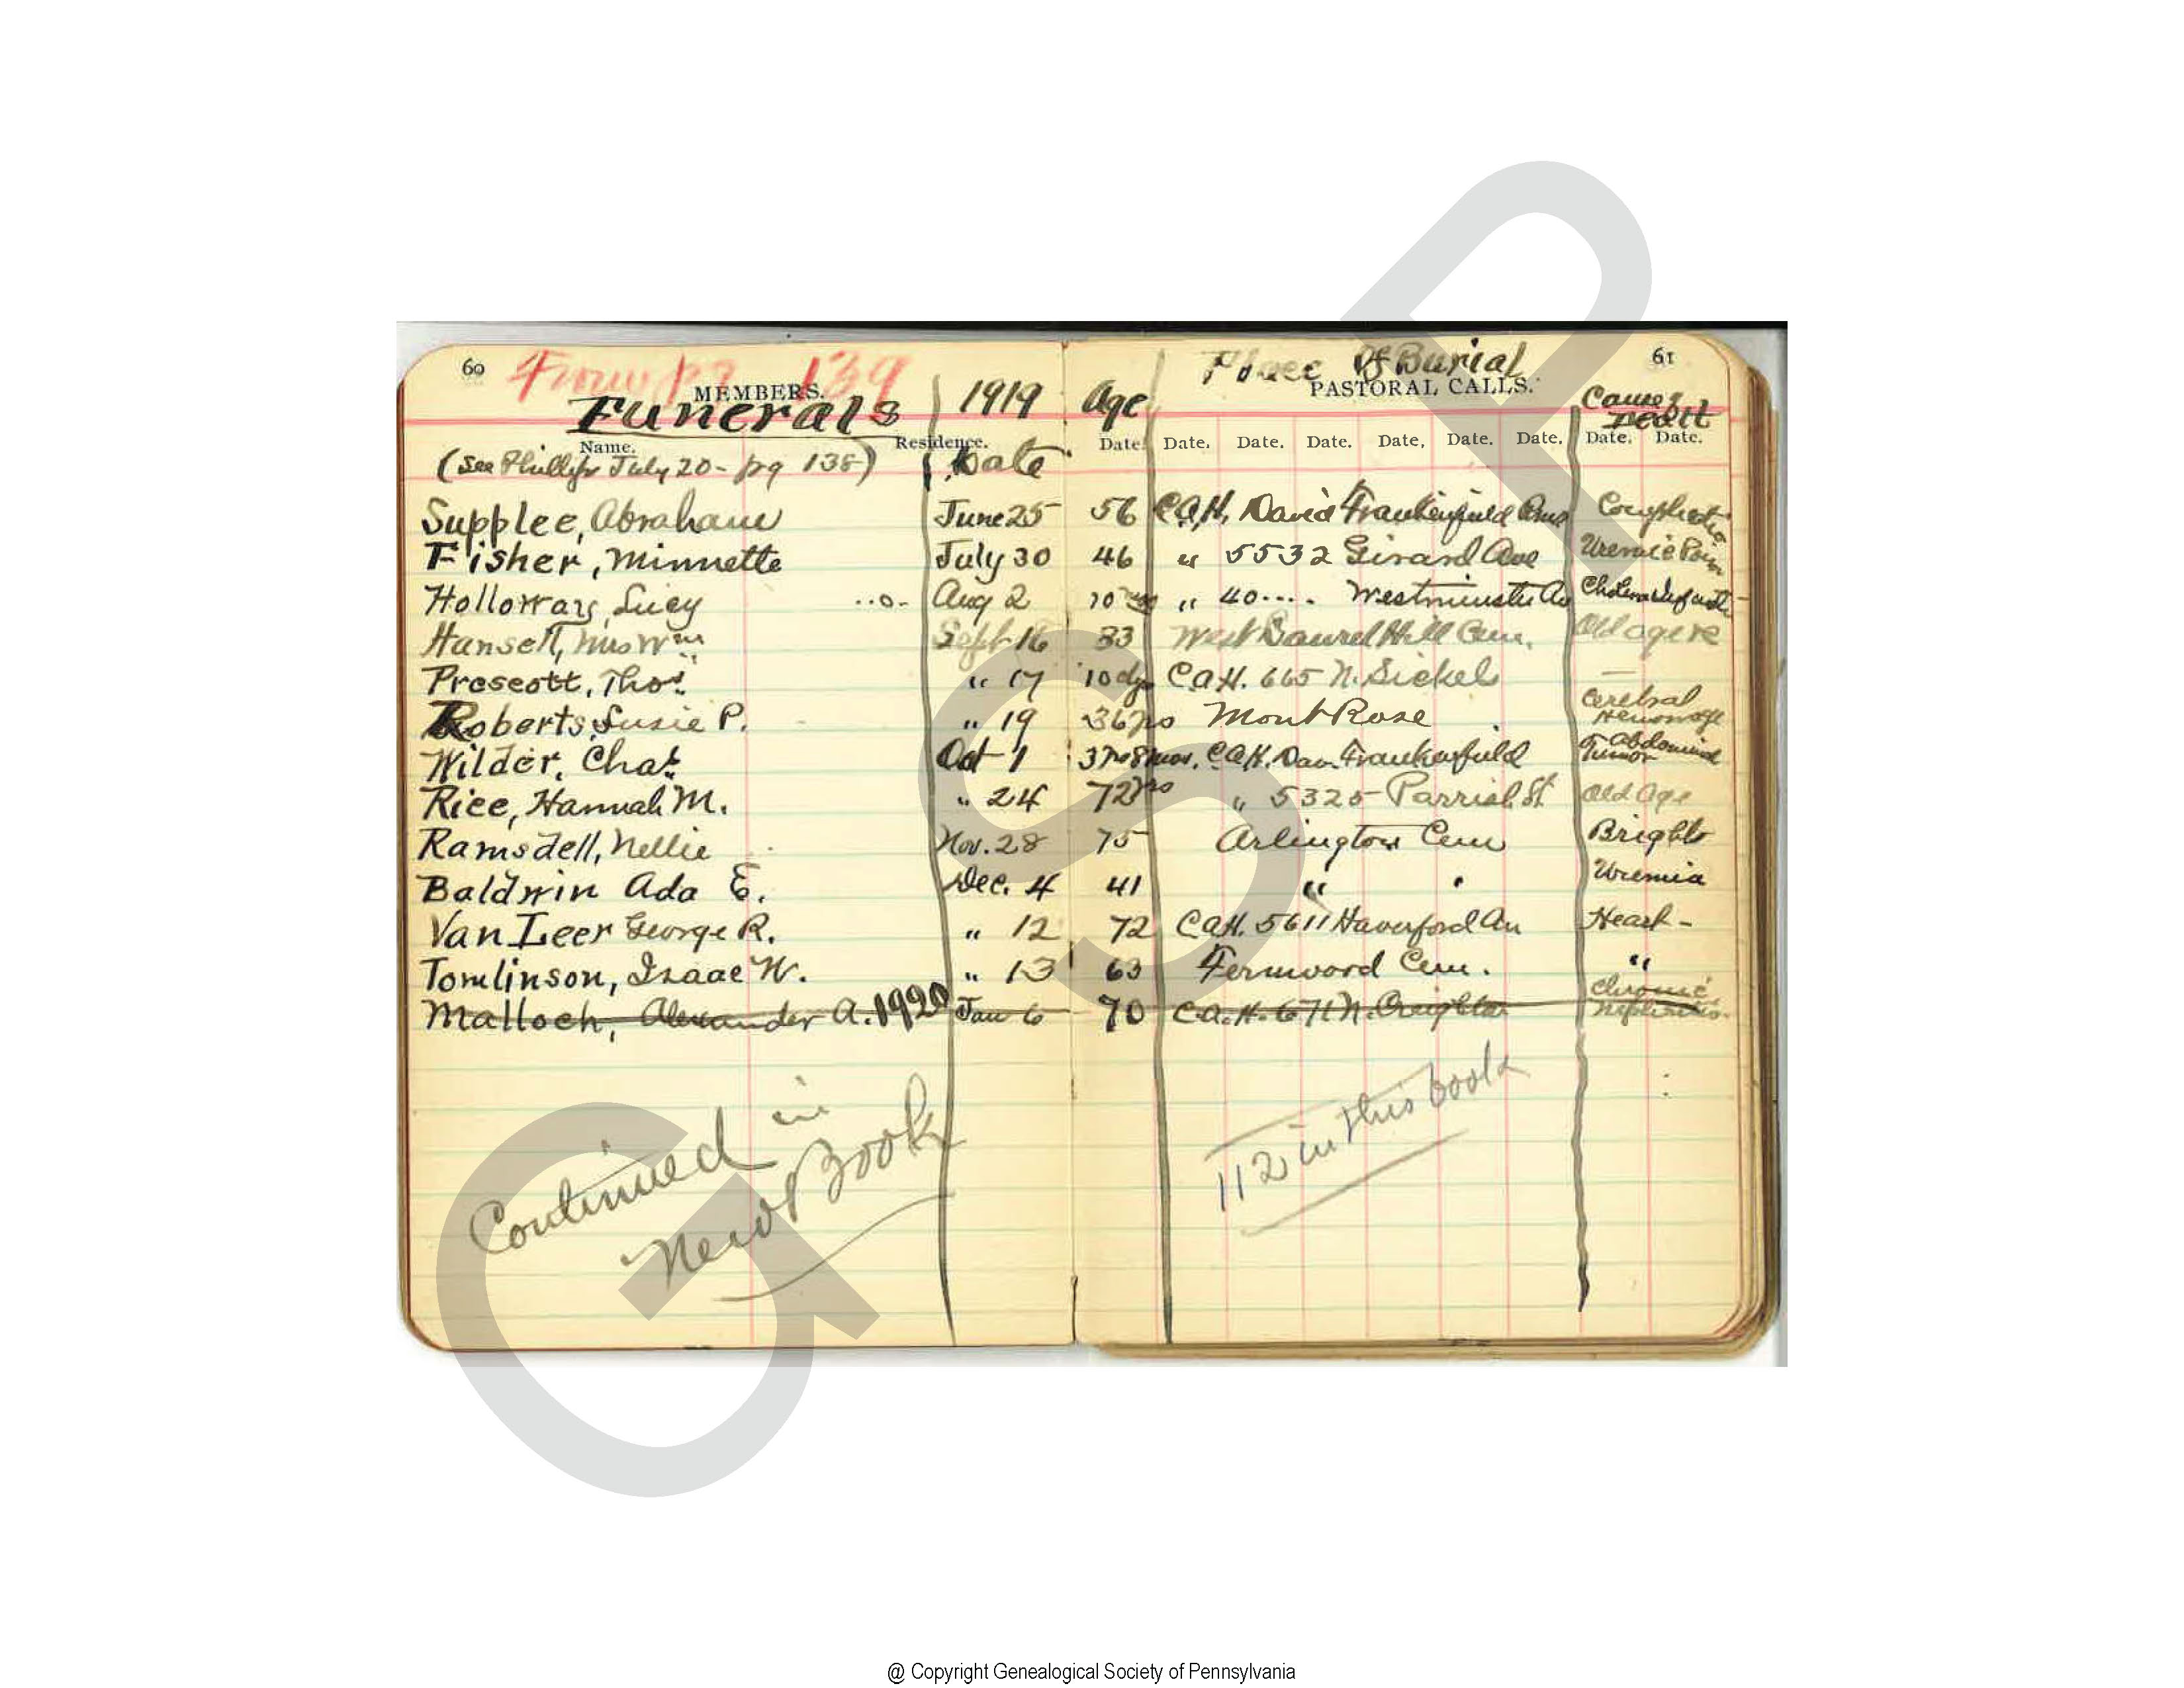 60 From pg 139
MEMBERS.
Funerals 1919 Age Place Of Burial 61
PASTORAL CALLS. Cause of Death
Name. Residence. Date. Date. Date. Date. Date. Date. Date. Date. Date.
(See Phillips July 20 - pg 138) Date
Supplee, Abraham June 25 56 C.A.H. David Frankenfield Complications
Fisher, Minnette July 30 46 " 5532 Girard Ave Uremic
Holloway, Lucy Aug 2 10 " 40.... Westminster Av Cholera
Hansell, Mrs Wm Sept 16 83 West Laurel Hill Cem. Old age
Prescott, Thos. " 17 10 dys C.A.H. 665 N. Sickels
Roberts, Susie P. " 19 36 yrs Mont Rose Cerebral Hemorrage
Wilder, Chas. Oct 1 3 yrs 8 mos. C.A.H. Dav. Frankenfield Abdominal Tumor
Rice, Hannah M. " 24 72 yrs " 5325 Parrish St Old Age
Ramsdell, Nellie Nov. 28 75 Arlington Cem Brights
Baldwin Ada E. Dec. 4 41 " " Uremia
Van Leer George R. " 12 72 C.A.H. 5611 Haverford Av Heart -
Tomlinson, Isaac W. " 13 63 Fernwood Cem. "
Malloch, Alexander A. 1920 Jan 6 70 C.A.H. 671 N. Creighton Chronic Nephritis
Continued in
New Book
112 in this book
GSP
@ Copyright Genealogical Society of Pennsylvania